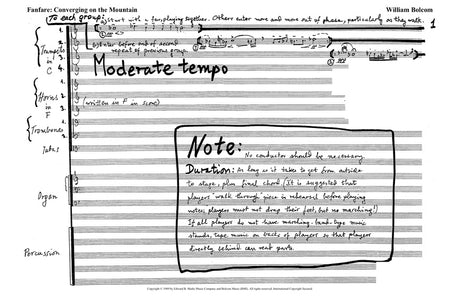 Fanfare: Converging on the Mountain
William Bolcom
1
To each group:
a) start with a few playing together. Others enter more and more out of phase, particularly as they walk.
b) Enter before end of second
repeat of previous group.
Trumpets
in
C
1.
2.
3.
4.
Moderate tempo
Horns
in
F
(written in F in score)
Trombones
Tuba
Organ
Percussion
Note:
No conductor should be necessary.
Duration: As long as it takes to get from outside
to stage, plus final chord. (It is suggested that
players "walk through" piece in rehearsal before playing
notes; players must not drag their feet, but no marching!)
If all players do not have marching-band-type music
stands, tape music on backs of players so that players
directly behind can read parts.